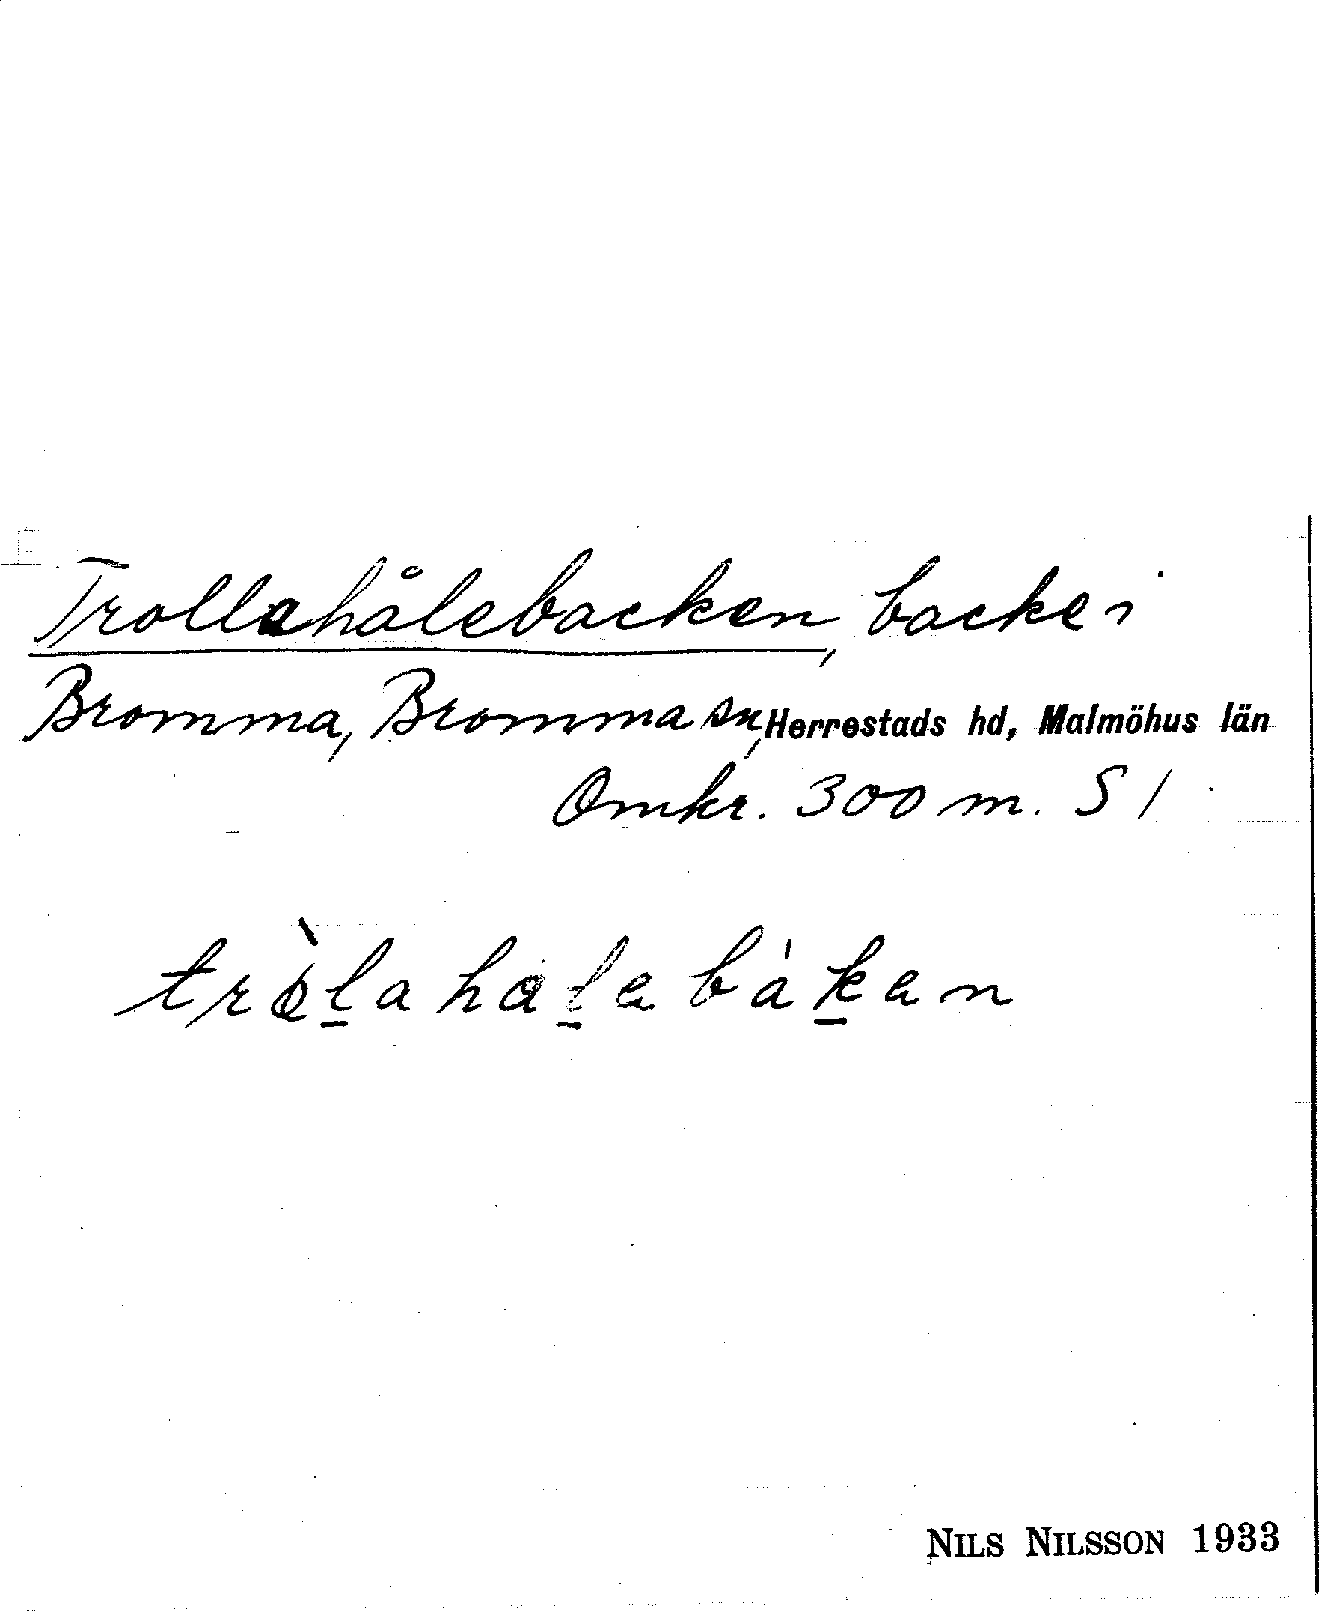 Trollahålebacken, backe i
Bromma, Bromma sn, Herrestads hd, Malmöhus län
Omkr. 300 m. S /
tròlahålebákan
NILS NILSSON 1933